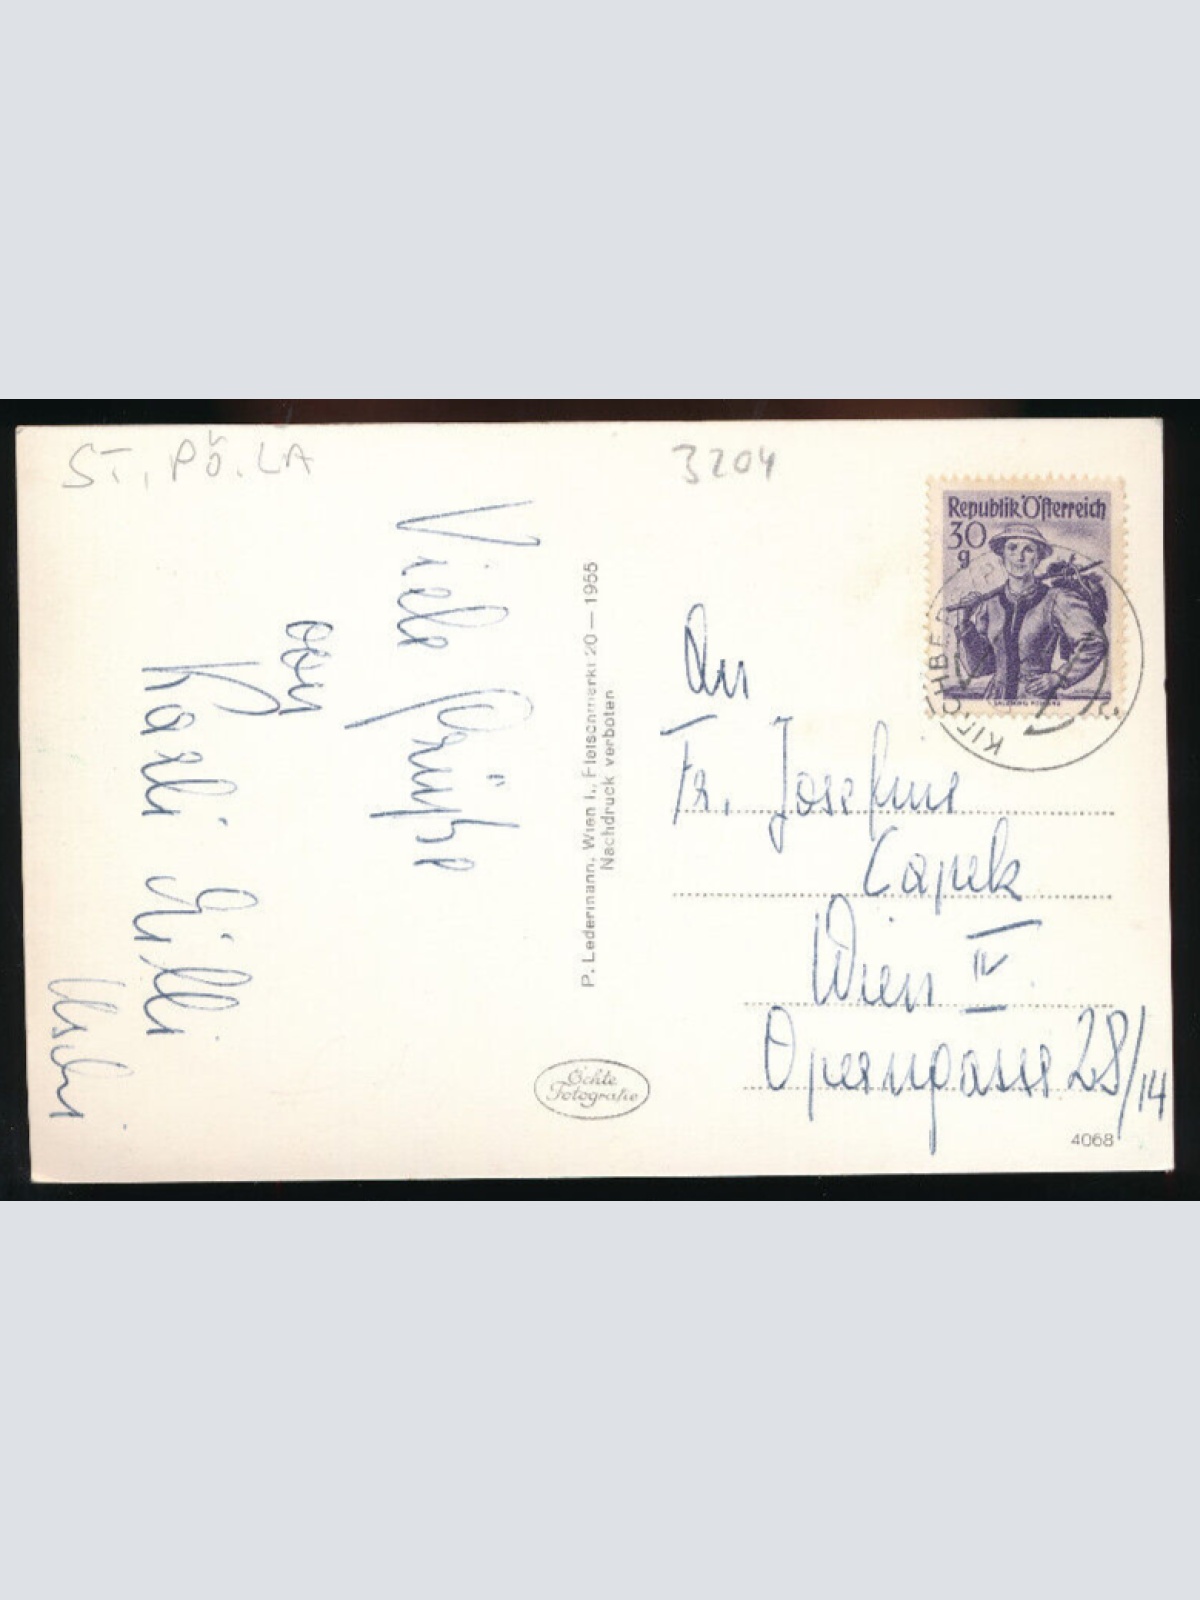 ST. PÖ. LA
3204
Viele Grüße
von
Karli Gilli
Uschi
P. Ledermann, Wien I., Fleischmarkt 20 — 1955
Nachdruck verboten
Echte
Fotografie
Republik Österreich
30
g
KIRCHBE
An
Fr. Josefine
Capek
Wien IV.
Operngasse 28/14
4068